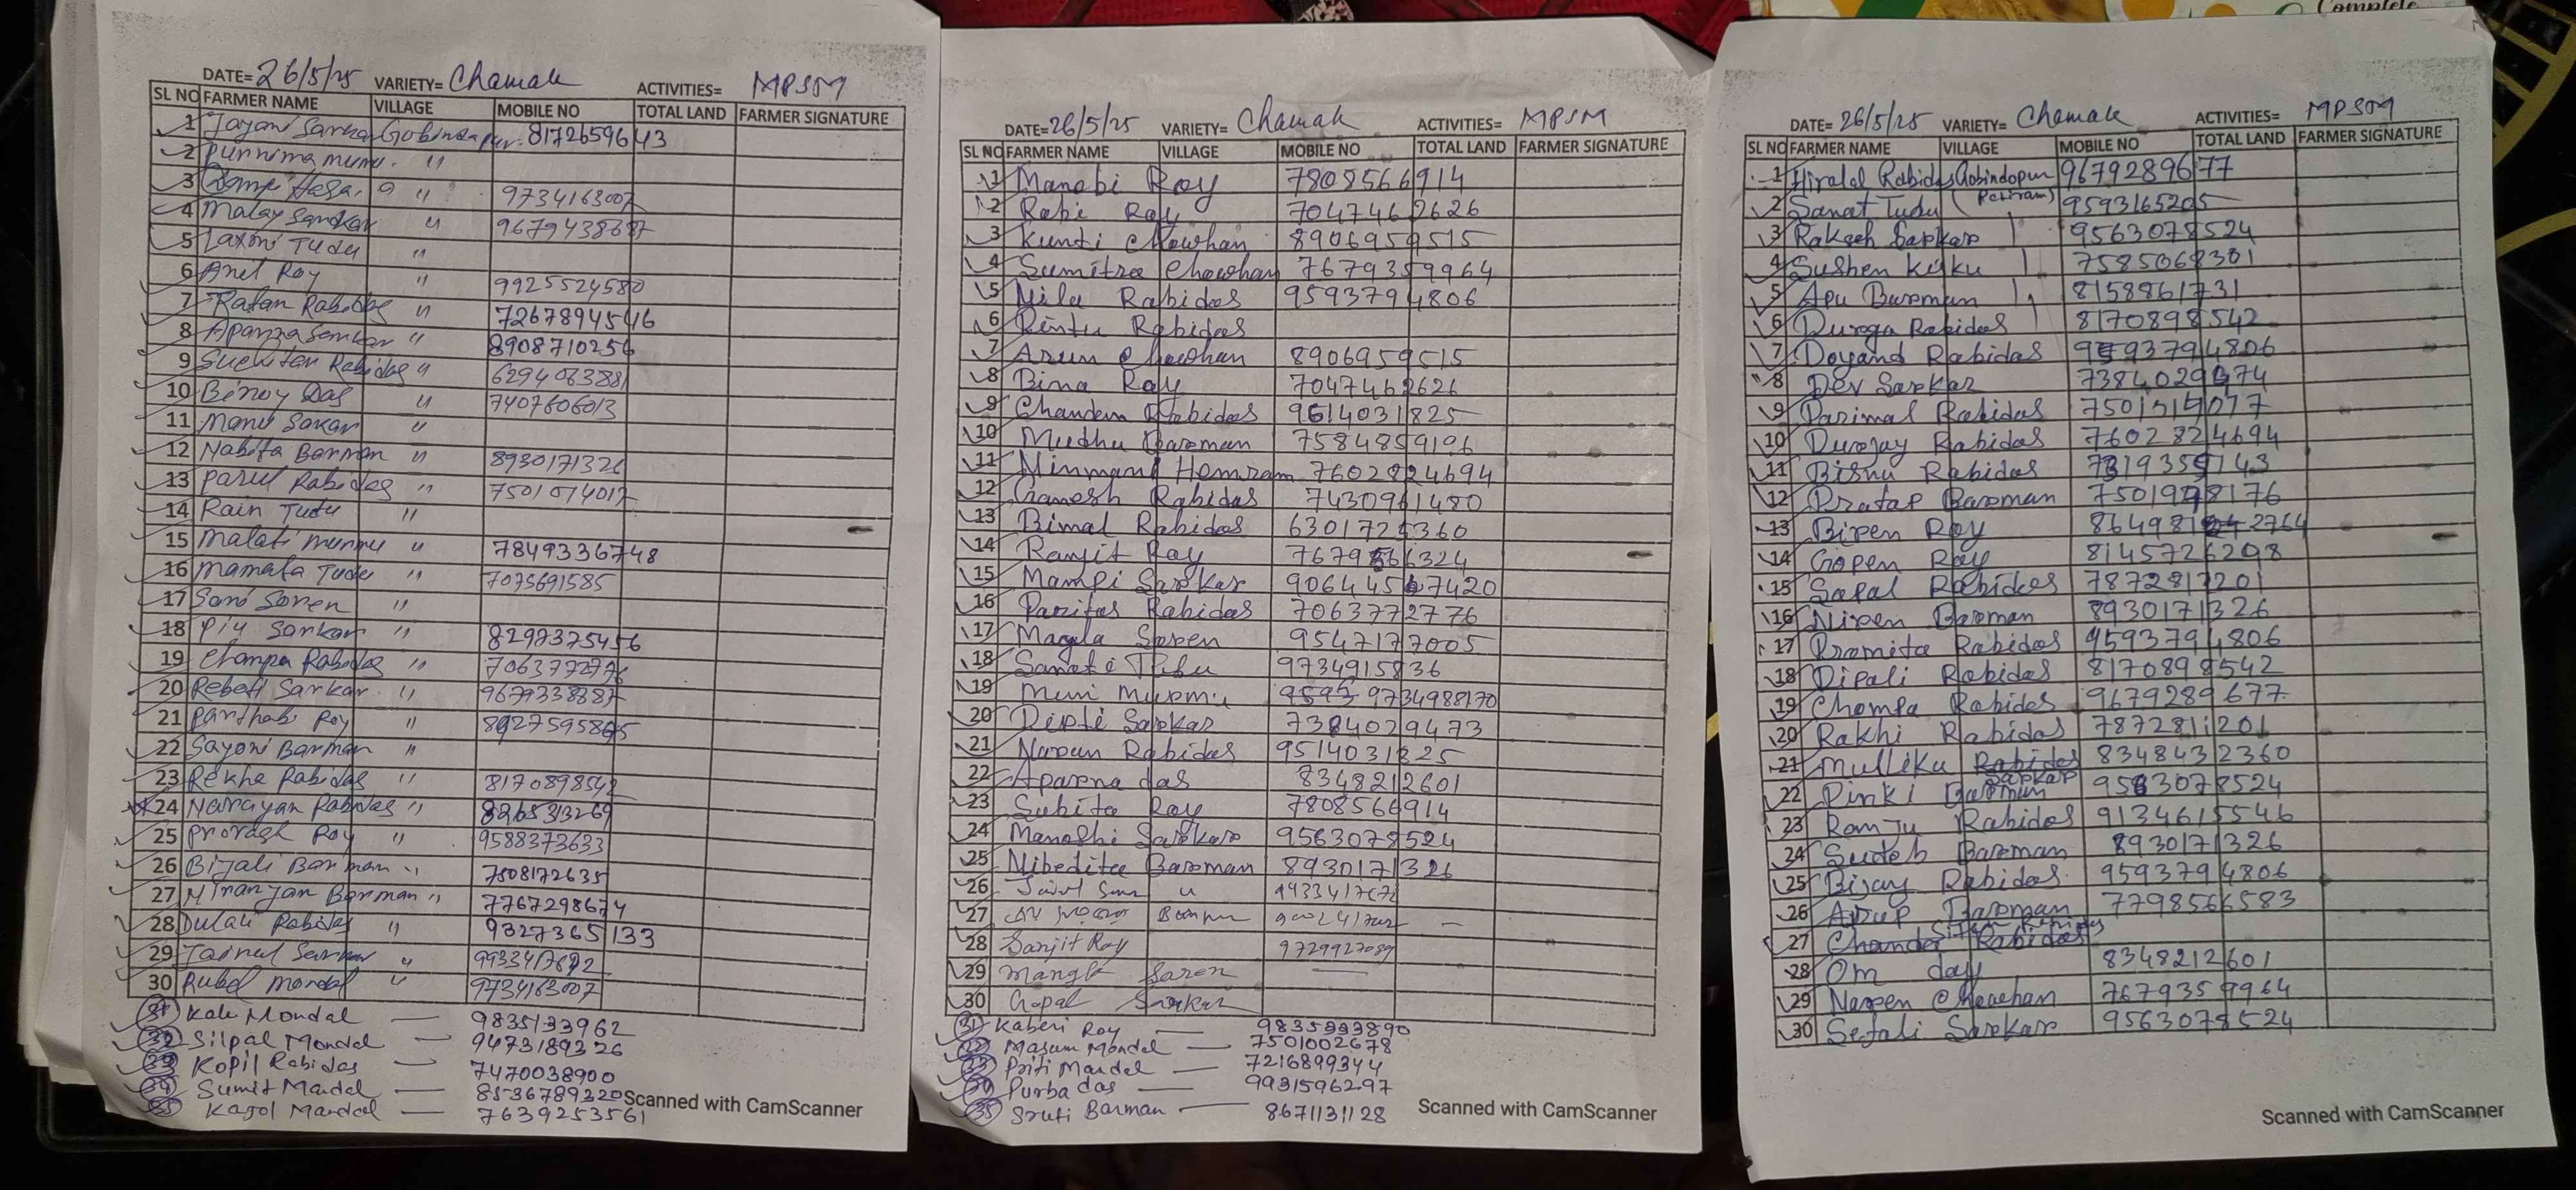 Complete
DATE= 26/5/25 VARIETY= Chamak ACTIVITIES= MPSM
SL NO FARMER NAME VILLAGE MOBILE NO TOTAL LAND FARMER SIGNATURE
1 Jayanti Sarkar Gobindapur. 8172659643
2 Purnima murmu. "
3 "  9734163007
4 Malay Sarkar " 9679438687
5 Laxmi Tudu "
6 Anil Roy " 9925524580
7 Ratan Rabidas " 72678945416
8 Aparna Sarkar " 8908710256
9 Suchitan Rabidas " 6294063881
10 Binoy Das " 7407606013
11 Manu Sakar "
12 Nabita Barman " 8930171326
13 Parul Rabidas " 7501014017
14 Rain Tudu "
15 Malati murmu " 7849336748
16 Mamata Tudu " 7075691585
17 Soni Soren "
18 Piu Sarkar " 8297375456
19 Champa Rabidas " 7063772776
20 Rebati Sarkar. " 9679338387
21 Parthabi Roy "
22 Sayoni Barman "
23 Rekha Rabidas " 8170898542
24 Narayan Rabidas " 8265313269
25 Proragh Roy " 9588373633
26 Bijali Barman " 7508172635
27 Niranjan Barman " 7767298674
28 Dulali Rabidas " 9327365133
29 Jainul Sarkar " 9933417672
30 Rubel Mondal " 9734163007
31 Kali Mondal — 9835133962
32 Silpal Mondal — 9473189326
33 Kopil Rabidas — 7470038900
34 Sumit Mandal — 8536789320
35 Kajol Mandal — 7639253561
Scanned with CamScanner
DATE= 26/5/25 VARIETY= Chamak ACTIVITIES= MPSM
SL NO FARMER NAME VILLAGE MOBILE NO TOTAL LAND FARMER SIGNATURE
1 Manobi Roy 7808566914
2 Rabi Roy 7047462626
3 Kunti Chowhan 8906959515
4 Sumitra Chowhan 7679359964
5 Nila Rabidas 9593794806
6 Rintu Rabidas
7 Arun Chowhan 8906959515
8 Bina Roy 7047462626
9 Chandan Rabidas 9614031825
10 Mudhu Barman 7584859196
11 Minmani Hemram 7602824694
12 Ganesh Rabidas 7430961480
13 Bimal Rabidas 6301725360
14 Ranjit Roy 7679566324
15 Mampi Sarkar 90644567420
16 Paritas Rabidas 7063772776
17 Magla Soren 9547177005
18 Sanati Tudu 9734915836
19 Muni Murmu 9593 9734988170
20 Dipti Sarkar 7384029473
21 Narun Rabidas 9514031825
22 Aparna das 8348212601
23 Subita Roy 7808566914
24 Manoshi Sarkar 9563078524
25 Nibedita Barman 8930171326
26 "
27
28 Sanjit Roy 9729927089
29 Mangli Saren —
30 Gopal Sarkar
31 Kaberi Roy — 9835333890
32 Masum Mondal — 7501002678
33 Priti Mandal — 7216899344
34 Purba das — 9931596297
35 Sruti Barman — 8671131128
Scanned with CamScanner
DATE= 26/5/25 VARIETY= Chamak ACTIVITIES= MPSM
SL NO FARMER NAME VILLAGE MOBILE NO TOTAL LAND FARMER SIGNATURE
1 Hiralal Rabidas Gobindopur 9679289677
2 Sanat Tudu (Patiram) 9593165205
3 Rakesh Sarkar 9563078524
4 Sushen Kisku 7585068301
5 Apu Barman 8158861731
6 Durga Rabidas 8170898542
7 Doyand Rabidas 9593794806
8 Dev Sarkar 7384029474
9 Parimal Rabidas 7501314017
10 Durjoy Rabidas 7602824694
11 Bishu Rabidas 7319359143
12 Pratap Barman 7501998176
13 Bipen Roy 864981 2764
14 Gopen Roy 8145726298
15 Sapal Rabidas 7872817201
16 Nipen Barman 8930171326
17 Promita Rabidas 9593794806
18 Dipali Rabidas 8170898542
19 Chompa Rabidas 9679289677
20 Rakhi Rabidas 7872811201
21 Mullika Rabidas 8348432360
22 Pinki Barman Sarkar 9563078524
23 Ramju Rabidas 9134615546
24 Sudeb Barman 8930171326
25 Bijay Rabidas. 9593794806
26 Arup Barman 7798566583
27 Chandai Rabidas
28 Om day 8348212601
29 Naren Chowhan 7679359964
30 Sefali Sarkar 9563078524
Scanned with CamScanner